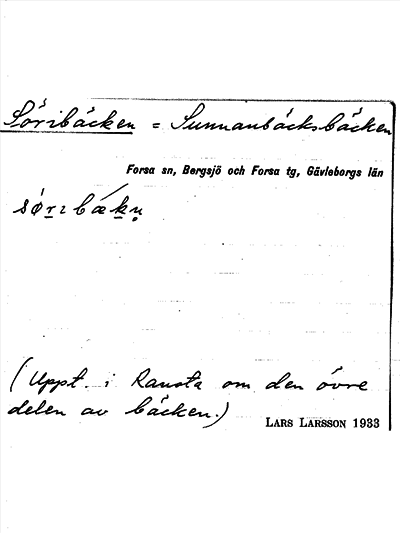 Söribäcken = Sunnanbäcksbäcken
Forsa sn, Bergsjö och Forsa tg, Gävleborgs län
(Uppt. i Ransta om den övre
delen av bäcken.)
LARS LARSSON 1933